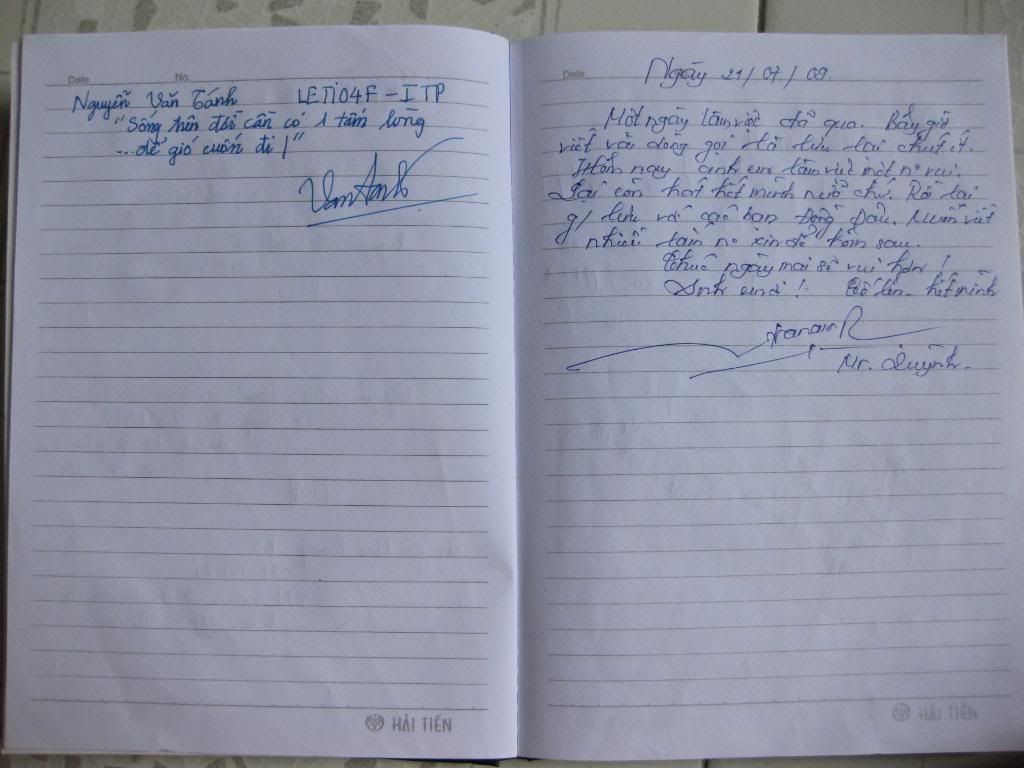 Date No.
Nguyễn Văn Tánh LETI04F - ITP
"Sống trên đời cần có 1 tấm lòng
...để gió cuốn đi!"
HẢI TIẾN
Date
Ngày 21/07/09.
Một ngày làm việc đã qua. Bây giờ
viết vài dòng gọi là lưu lại chút ít.
Hôm nay anh em làm việc mệt mà vui.
Lại còn hát hết mình nữa chứ. Rồi lại
g/ lưu với các bạn Đông Đậu. Muốn viết
nhiều xin để hôm sau.
Chúc ngày mai sẽ vui hơn!
Anh em ơi! Cố lên hết mình
Mr. Quỳnh.
HẢI TIẾN